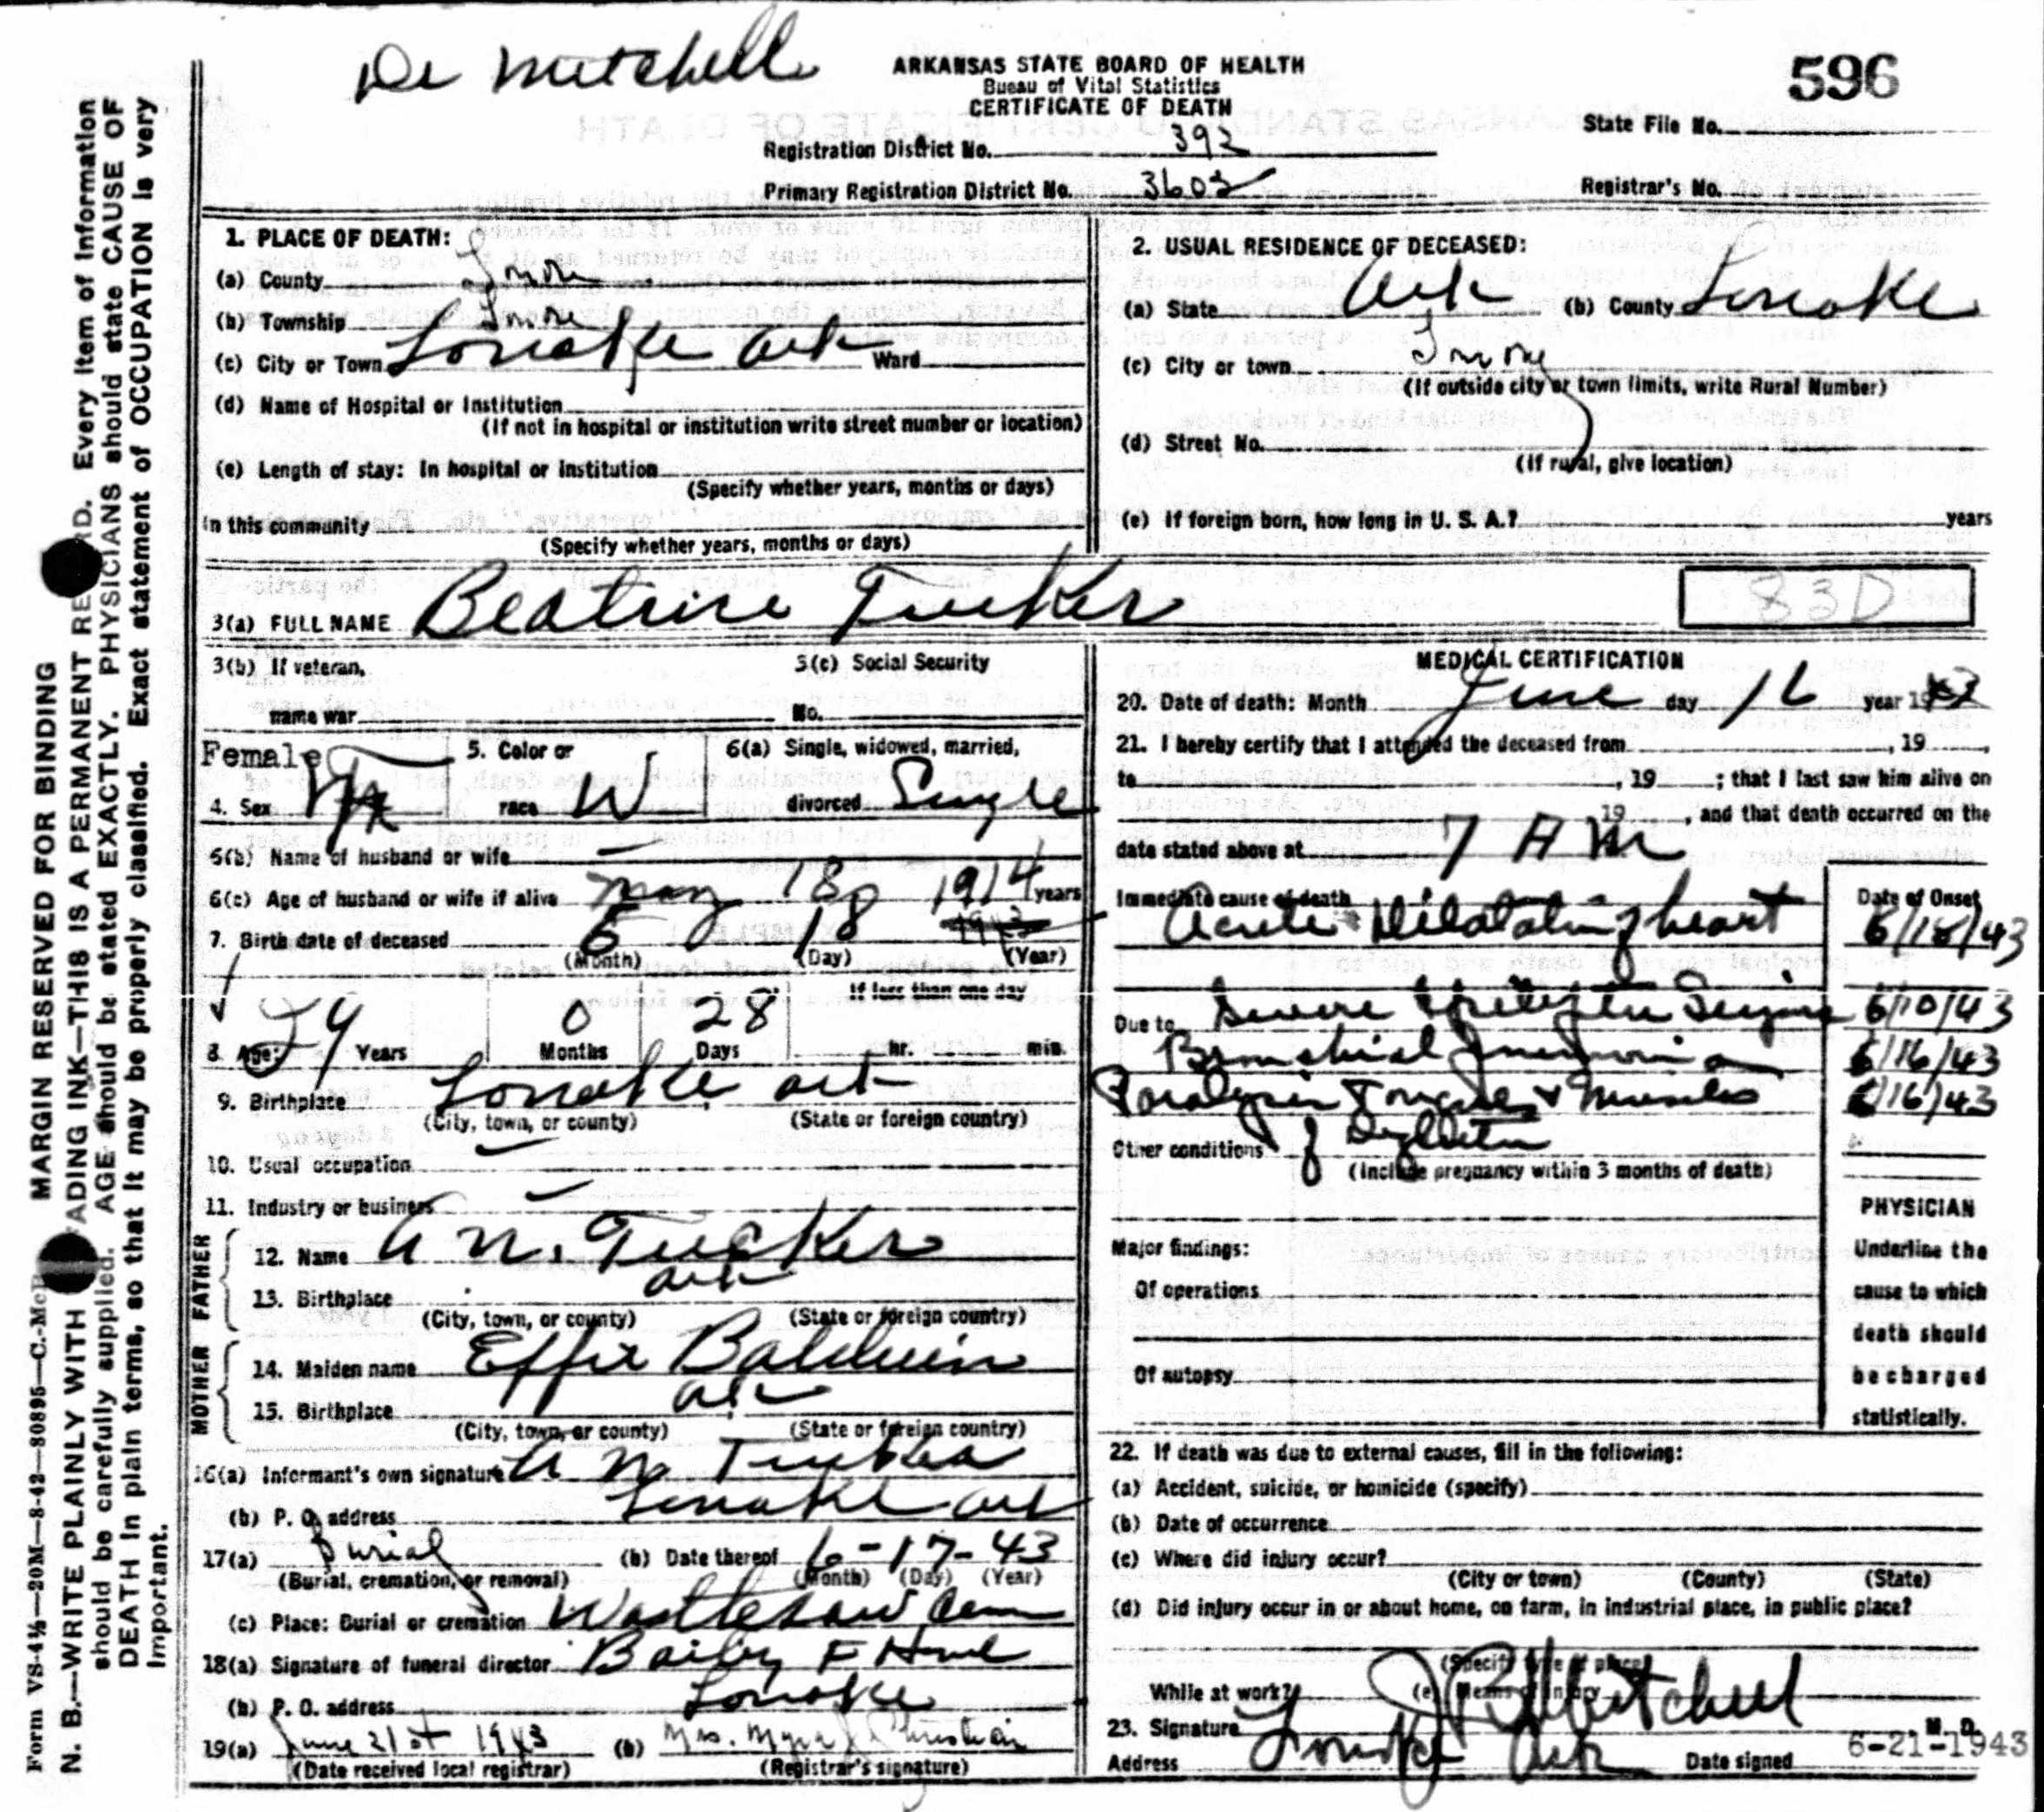 Dr Mitchell
596
ARKANSAS STATE BOARD OF HEALTH
Bueau of Vital Statistics
CERTIFICATE OF DEATH
State File No.
Registration District No. 392
Primary Registration District No. 3602
Registrar's No.
1. PLACE OF DEATH:
(a) County Lonoke
(b) Township Lonoke
(c) City or Town Lonoke Ark Ward
(d) Name of Hospital or Institution
(If not in hospital or institution write street number or location)
(e) Length of stay: In hospital or institution
(Specify whether years, months or days)
In this community
(Specify whether years, months or days)
2. USUAL RESIDENCE OF DECEASED:
(a) State Ark (b) County Lonoke
(c) City or town
(If outside city or town limits, write Rural Number)
(d) Street No.
(If rural, give location)
(e) If foreign born, how long in U. S. A.? years
3(a) FULL NAME Beatrice Tucker
83D
3(b) If veteran,
name war
3(c) Social Security
No.
Female
4. Sex
5. Color or
race W
6(a) Single, widowed, married,
divorced Single
6(b) Name of husband or wife —
6(c) Age of husband or wife if alive years
May 18 1914
7. Birth date of deceased 5 18 1943
(Month) (Day) (Year)
If less than one day
8. Age: 29 Years 0 Months 28 Days hr. min.
9. Birthplace Lonoke Ark
(City, town, or county) (State or foreign country)
10. Usual occupation —
11. Industry or business —
FATHER
12. Name A N. Tucker
13. Birthplace Ark
(City, town, or county) (State or foreign country)
MOTHER
14. Maiden name Effie Baldwin
15. Birthplace Ark
(City, town, or county) (State or foreign country)
16(a) Informant's own signature A N Tucker
(b) P. O. address Lonoke Ark
17(a) Burial (b) Date thereof 6-17-43
(Burial, cremation, or removal) (Month) (Day) (Year)
(c) Place: Burial or cremation Cem
18(a) Signature of funeral director F Home
(b) P. O. address Lonoke
19(a) June 21st 1943 (b) Mrs. Myra Christian
(Date received local registrar) (Registrar's signature)
MEDICAL CERTIFICATION
20. Date of death: Month June day 16 year 1943
21. I hereby certify that I attended the deceased from , 19 ,
to , 19 ; that I last saw him alive on
19 , and that death occurred on the
date stated above at 7 A M
Immediate cause of death Date of Onset
Acute Dilatation of heart 6/16/43
Due to Severe Epileptic Seizure 6/10/43
Bronchial Pneumonia 6/16/43
Paralysis Tongue & Muscles 6/16/43
Other conditions of
(Include pregnancy within 3 months of death)
Major findings:
Of operations
Of autopsy
PHYSICIAN
Underline the
cause to which
death should
be charged
statistically.
22. If death was due to external causes, fill in the following:
(a) Accident, suicide, or homicide (specify)
(b) Date of occurrence
(c) Where did injury occur?
(City or town) (County) (State)
(d) Did injury occur in or about home, on farm, in industrial place, in public place?
(Specify type of place)
While at work? (e) Means of injury
23. Signature J B Mitchell M. D.
Address Lonoke Ark Date signed 6-21-1943
Form VS-4½—20M—8-42—80895—C.-McB
MARGIN RESERVED FOR BINDING
N. B.—WRITE PLAINLY WITH FADING INK—THIS IS A PERMANENT RECORD. Every item of information
should be carefully supplied. AGE should be stated EXACTLY. PHYSICIANS should state CAUSE OF
DEATH in plain terms, so that it may be properly classified. Exact statement of OCCUPATION is very
important.